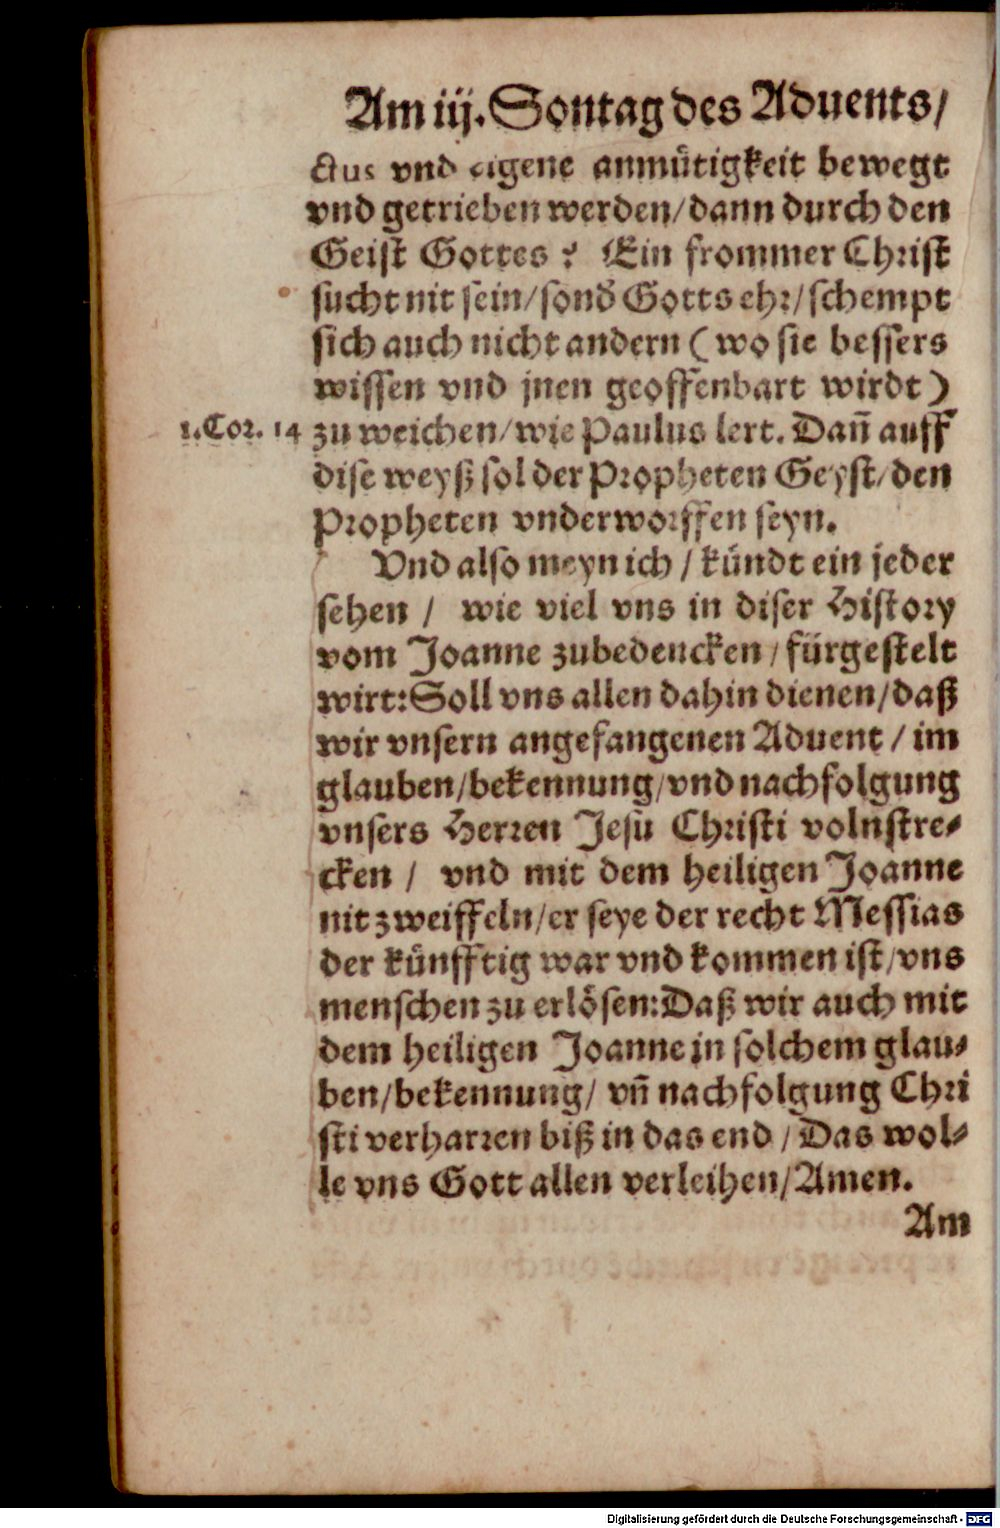 Am iij. Sontag des Aduents/
ctus vnd eigene anmütigkeit bewegt
vnd getrieben werden/dann durch den
Geist Gottes? Ein frommer Christ
sucht nit sein/sond̃ Gotts ehr/schempt
sich auch nicht andern (wo sie bessers
wissen vnd jnen geoffenbart wirdt)
1.Cor. 14 zu weichen/wie Paulus lert. Dañ auff
dise weyß sol der Propheten Geyst/den
Propheten vnderworffen seyn.
Vnd also meyn ich/kündt ein jeder
sehen/ wie viel vns in diser History
vom Joanne zubedencken/fürgestelt
wirt:Soll vns allen dahin dienen/daß
wir vnsern angefangenen Aduent/im
glauben/bekennung/vnd nachfolgung
vnsers Herren Jesu Christi volnstre-
cken/ vnd mit dem heiligen Joanne
nit zweiffeln/er seye der recht Messias
der künfftig war vnd kommen ist/vns
menschen zu erlösen:Daß wir auch mit
dem heiligen Joanne jn solchem glau-
ben/bekennung/ vñ nachfolgung Chri
sti verharren biß in das end/Das wol-
le vns Gott allen verleihen/Amen.
Am
Digitalisierung gefördert durch die Deutsche Forschungsgemeinschaft - DFG